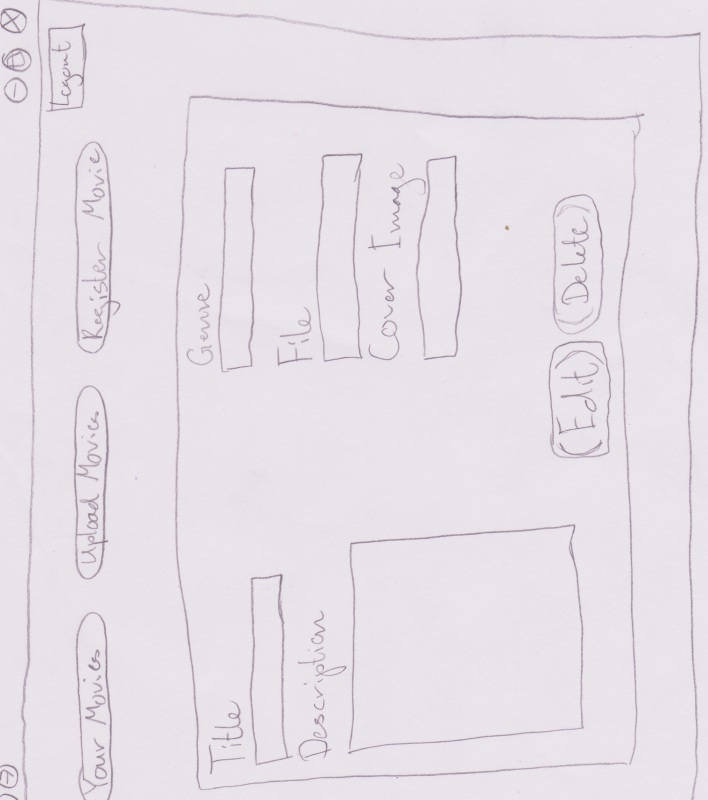 Logout
Your Movies
Upload Movies
Register Movie
Title
Genre
Description
File
Cover Image
Edit
Delete